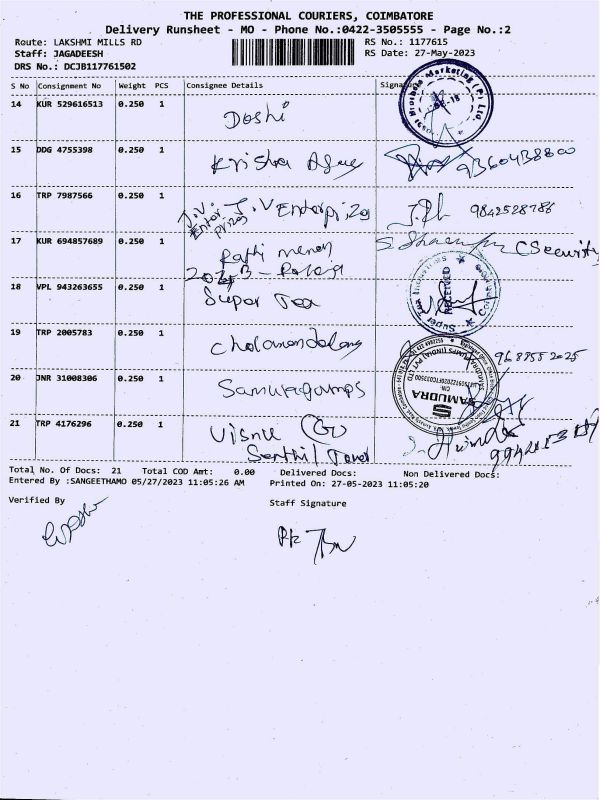 THE PROFESSIONAL COURIERS, COIMBATORE
Delivery Runsheet - MO - Phone No.:0422-3505555 - Page No.:2
Route: LAKSHMI MILLS RD
RS No.: 1177615
Staff: JAGADEESH
RS Date: 27-May-2023
DRS No.: DCJB117761502
S No Consignment No Weight PCS Consignee Details Signature
14 KUR 529616513 0.250 1 Doshi
15 DDG 4755398 0.250 1 Krisha 9360438800
16 TRP 7987566 0.250 1 J.V. Enterprizes J.V Enterprizes 9842528786
17 KUR 694857689 0.250 1 menon Security
18 VPL 943263655 0.250 1 Super Tea RECEIVED
19 TRP 2005783 0.250 1 Cholamandalam
20 JNR 31008306 0.250 1 Samudrapumps SAMUDRA
21 TRP 4176296 0.250 1 Visnu
Senthil Tower
Total No. Of Docs: 21 Total COD Amt: 0.00 Delivered Docs: Non Delivered Docs:
Entered By :SANGEETHAMO 05/27/2023 11:05:26 AM Printed On: 27-05-2023 11:05:20
Verified By
Staff Signature